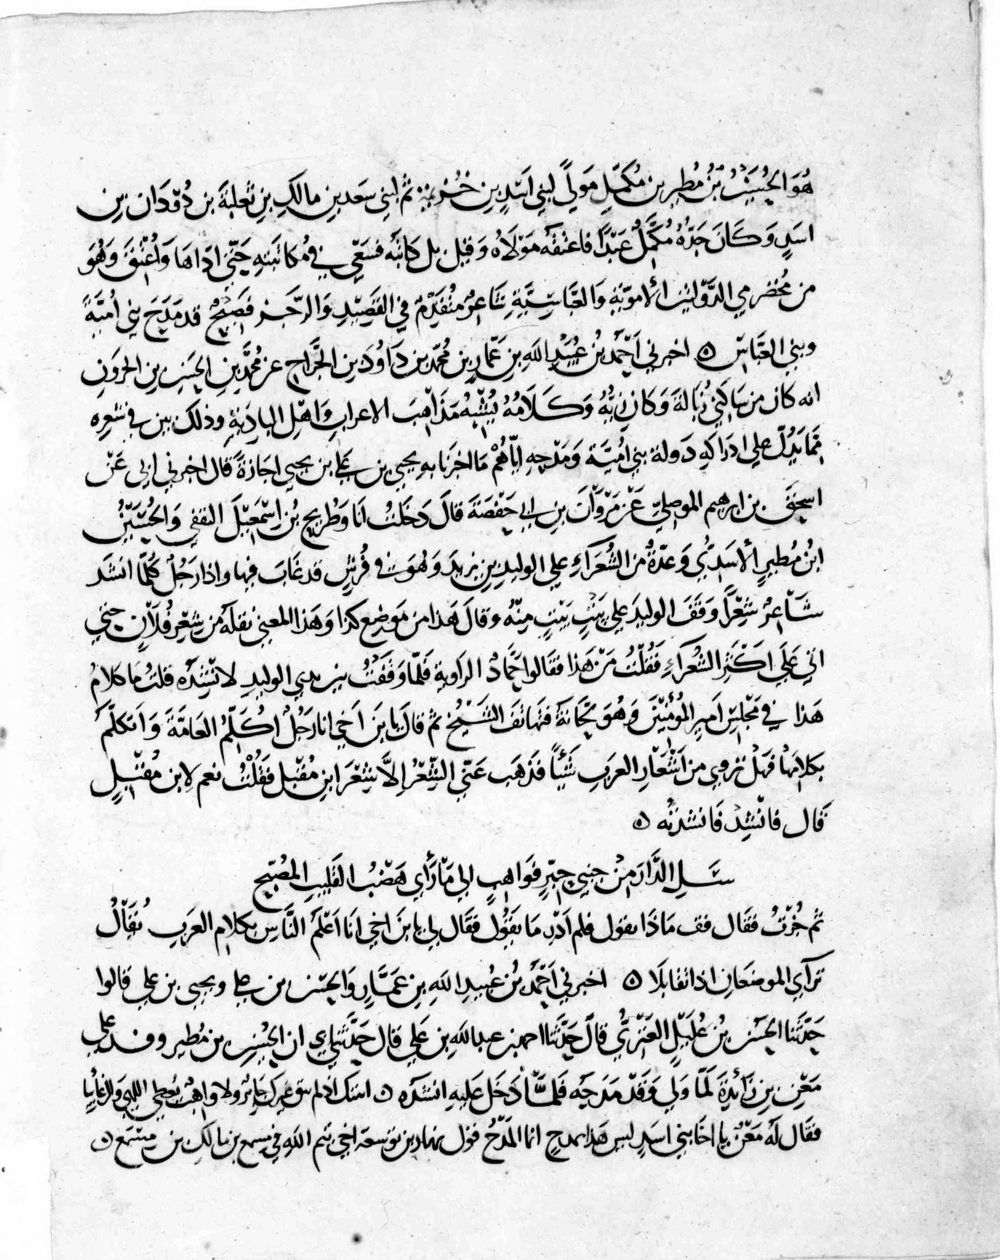 هُوَ الحُسَيْنُ بْنُ مُطَيرِ بنِ مُكَمِّلٍ مَوْلًى لِبَني اَسَدِ بنِ خُزيمة ثُمَّ لبني سَعدِ بنِ مالكِ بنِ ثعلبَةَ بن دُوْدَانَ بنِ
اسَدٍ وَكَانَ جَدّهُ مُكَمِّلٌ عَبْدًا فاعتقَه مَوْلَاهُ وَقيلَ بل كاتبَه فسَعَى في مُكاتَبَتِه حَتّى ادّاهَا وَأُعْتِقَ وَهُوَ
من مُخضرمي الدَّوْلتَيْن الأمويّة والعَبّاسِيَّةِ شَاعِرٌ مُتقَدّمٌ في القَصِيْدِ والرّجَز فَصيْحٌ قد مَدَحَ بَني أميّةَ
وبني العَبّاسِ ۞ اخبرَني اَحْمَدُ بنُ عُبَيْدِ اللهِ بنِ عَمّارٍ بنِ مُحمّد بن دَاوُدَ بنِ الجَرَّاحِ عن مُحمَّدِ بنِ الحَسَنِ بنِ الحرَونِ
انه كان من سَاكِنِي زُبَالةَ وَكان زيُّهُ وَكَلَامُهُ يُشْبِهُ مَذَاهِبَ الاعرابِ وَاهْلِ البَادِيَةِ وذلكَ بين في شعره
مما يَدُلّ على ادراكِهِ دَوْلةَ بني اُمَيّةَ وَمَدْحِهِ ايّاهُمْ مَا اخبرَنا بهِ يحيى بن عَلي بن يحيى اجَازةً قال اخبرني ابي عَنْ
اسحقَ بن ابرهيم الموصليّ عَنْ مَرْوَانَ بنِ ابي حَفْصَةَ قالَ دَخَلتُ انَا وَطُرَيحُ بنُ اسْمَعِيْلَ الثقفي وَالحُسَيْنُ
ابْنُ مُطيرٍ الأسَديُّ وَعدّةٌ مِنَ الشُّعَرَآءِ عَلى الوليدِ بنِ يزيدَ وَهُوَ في فُرُشٍ قد غابَ فيها واذا رَجُلٌ كُلّمَا انشدَ
شَاعِرٌ شِعْرًا وَقفَ الوليدَ على بَيْتٍ بَيْتٍ مِنْهُ وقالَ هَذا من مَوضِعِ كذا وَهَذا المعنى نقلَهُ من شِعرِ فُلانٍ حتى
اتى عَلى اَكْثرِ الشُعَرآءِ فَقُلْتُ مَنْ هَذا فقَالوا حَمّادٌ الراوية فلَمَّا وَقفْتُ بين يدي الوليدِ لانشِدَه قلتُ ما كلامُ
هَذا في مَجْلسِ اَميرِ المُؤمنينَ وَهوَ لَحّانة فتهَانفَ الشّيْخُ ثم قالَ يا بن اَخي انا رَجُلٌ اكلّمُ العَامّةَ وَاتكلّمُ
بكلامِهَا فهَلْ تروي من اَشْعَارِ العرَبِ شيئًا فذَهبَ عَنّي الشّعرُ اِلاّ شِعْرَ ابنِ مُقبل فقُلْتُ نعم لابن مُقبلٍ
قال فانْشِدْ فَانشدتُه ۞
سَلِ الدَّارَ مِنْ جَنبَيْ حِبِرٍّ فَوَاهِبِ الى مَا رَأى هَضْبَ القَليبِ المُضَيَّحِ
ثم جُزْتُ فقال قف مَاذَا يقول فلم اَدْرِ مَا يقُولُ فقَال لي يا بنَ اخي انَا اَعْلَمُ النَّاسِ بكلامِ العرَبِ يُقالُ
ترآى الموضعَانِ اذا تقابَلا ۞ اخبرني اَحْمَدُ بنُ عُبَيدِ اللهِ بنِ عَمَّارٍ وَالحسَن بن عليّ ويحيى بن علي قالوا
حَدّثنا الحسَنُ بنُ عُلَيْلٍ العَنَزيُّ قالَ حَدّثنا احمد بن عبدالله بنِ عَلي قال حَدّثني ابي ان الحُسَين بن مُطير وفد على
مَعْنِ بنِ زَائدةَ لَمّا وَلي وَقَدْ مَدَحَه فلمَّا دَخلَ عَليهِ انشدَه ۞ اتيتك اذ لم يبق غيرك جابر ولا واهب يُعطي اللهى والرغائبا
فقَال لَه مَعْنٌ يا اخَا بني اسَدٍ ليسَ هَذا بمدحٍ انما المَدْحُ قول نهار بن توسعة اخي تيم الله في مسمع بن مالك بن مِسْمَعٍ ۞